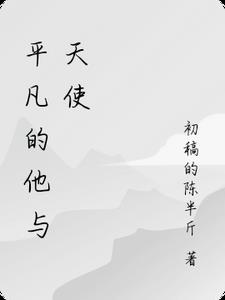 平凡的他与
天使
初稿的陈半斤 著